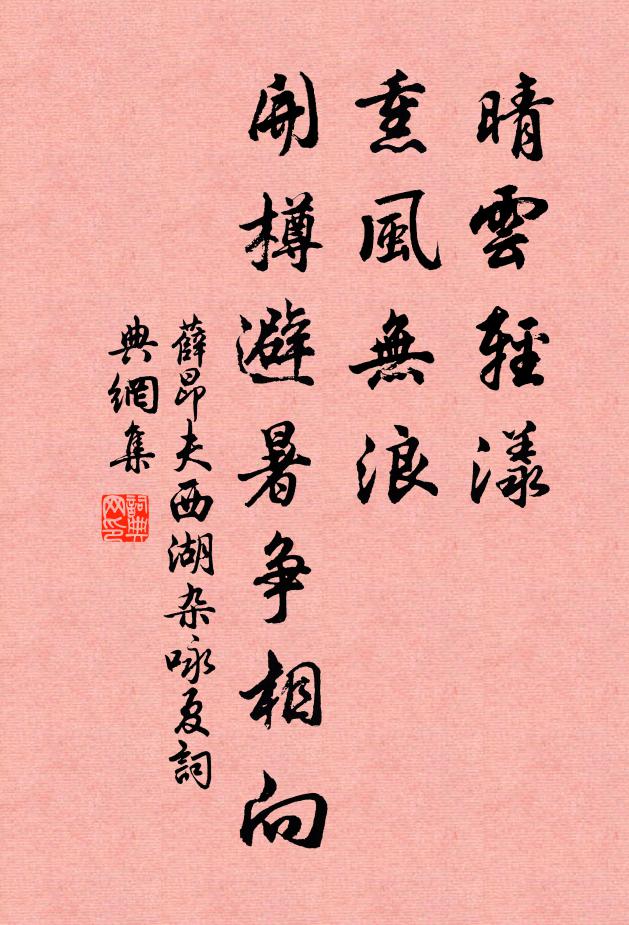 晴雲輕漾
熏風無浪
開樽避暑争相向
薛昂夫西湖杂咏夏詞
典網集
詞典網印